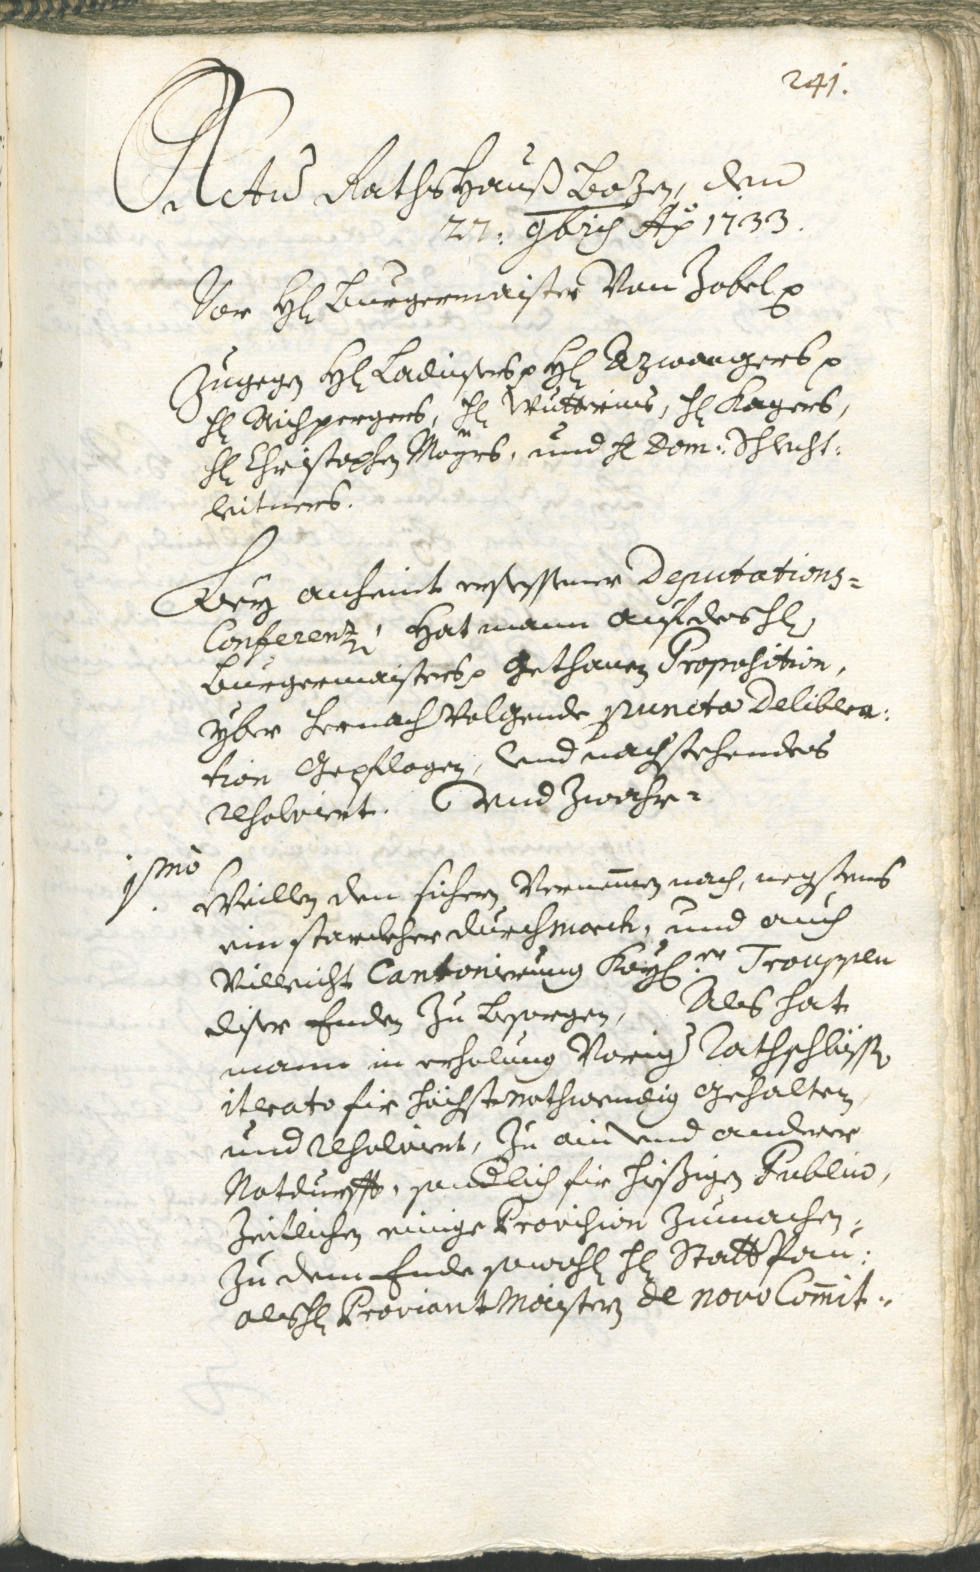 241.
Actũ RathsHauß Bozen, den
27: 9bris Ao 1733.
Vor H: Burgermaister Von Zobel p
Zugegen H: Ladurners p H: Azwangers p
H: Aichpergers, H: Wutterins, H: Kagers,
H: Christophen Mayrs, und H: Dom: Schlecht:
leitners.
Bey anheint ersessener Deputations=
Conferenz, Hat mann auf des H:
Burgermaisters p Gethanen Proposition,
yber hernach Volgende puncta Delibera:
tion Gepflogen, und nachstehendes
resolviert. Und Zwahr=
1mo
Weillen dem sichern Vernemmen nach, negstens
ein starckher durchmarch, und auch
Villeicht Cantonierung Kayl:er Trouppen
diser Enden Zu besorgen, Als hat
mann in erholung Vorig: Rathschluss
iterato für höchst nothwendig Gehalten,
und resolviert, Zu ain und anderer
Notdurfft, sondlich für hießigen Publico,
Zeitlichen einige Provision Zumachen,
Zu dem Ende sowohl H: Statt Pau:
als H: Proviant Maistern de novo Commit=